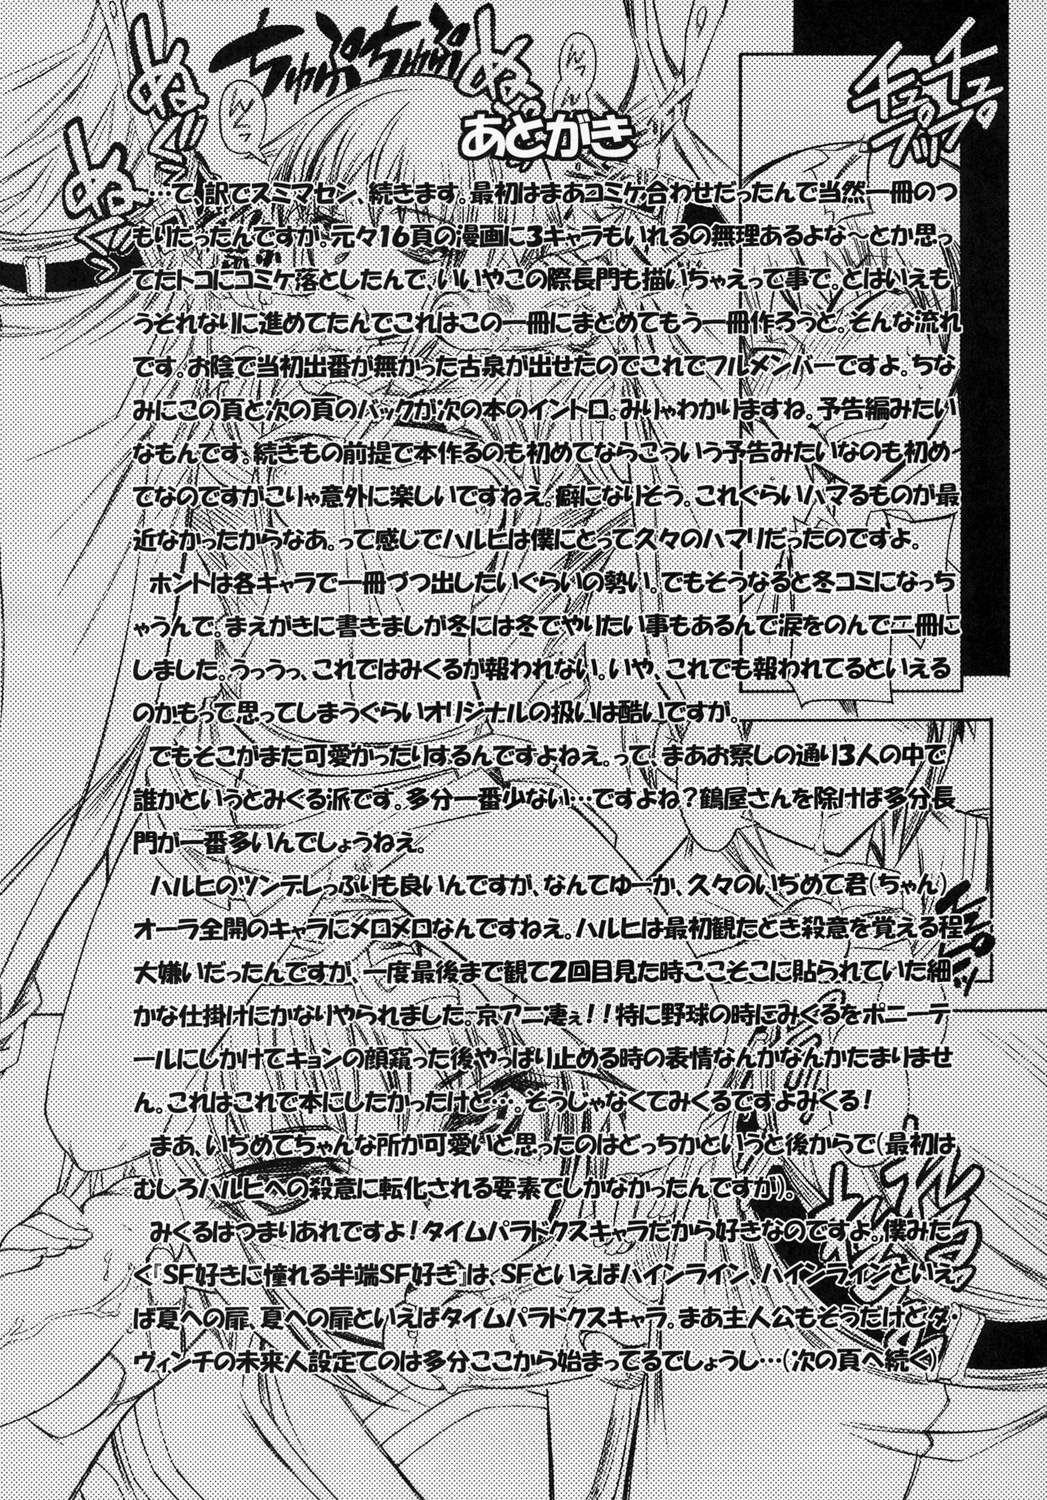 ちゅぷちゅぷ
ぬっ
ぬぐ
ぬっ
んっ
んっ
チュプ
チュプ
あとがき
…て、訳でスミマセン、続きます。最初はまあコミケ合わせだったんで当然一冊のつ
もりだったんですが。元々16頁の漫画に3キャラもいれるの無理あるよな〜とか思っ
てたトコにコミケ落としたんで、いいやこの際長門も描いちゃえって事で。とはいえも
うそれなりに進めてたんでこれはこの一冊にまとめてもう一冊作ろうと。そんな流れ
です。お陰で当初出番が無かった古泉が出せたのでこれでフルメンバーですよ。ちな
みにこの頁と次の頁のバックが次の本のイントロ。みりゃわかりますね。予告編みたい
なもんです。続きもの前提で本作るのも初めてならこういう予告みたいなのも初め
てなのですがこりゃ意外に楽しいですねえ。癖になりそう。これぐらいハマるものが最
近なかったからなあ。って感じでハルヒは僕にとって久々のハマりだったのですよ。
ホントは各キャラで一冊づつ出したいぐらいの勢い。でもそうなると冬コミになっち
ゃうんで。まえがきに書きましが冬には冬でやりたい事もあるんで涙をのんで二冊に
しました。うっうっ、これではみくるが報われない。いや、これでも報われてるといえる
のかもって思ってしまうぐらいオリジナルの扱いは酷いですが。
でもそこがまた可愛がったりするんですよねえ。って、まあお察しの通り3人の中で
誰かというとみくる派です。多分一番少ない…ですよね？鶴屋さんを除けば多分長
門が一番多いんでしょうねえ。
ハルヒのツンデレっぷりも良いんですが、なんてゆーか、久々のいぢめて君(ちゃん)
オーラ全開のキャラにメロメロなんですねえ。ハルヒは最初観たとき殺意を覚える程
大嫌いだったんですが、一度最後まで観て2回目見た時ここそこに貼られていた細
かな仕掛けにかなりやられました。京アニ凄ぇ！！特に野球の時にみくるをポニーテ
ールにしかけてキョンの顔窺った後やっぱり止める時の表情なんかなんかたまりませ
ん。これはこれで本にしたかったけど…。そうじゃなくてみくるですよみくる！
まあ、いぢめてちゃんな所が可愛いと思ったのはどっちかというと後からで(最初は
むしろハルヒへの殺意に転化される要素でしかなかったんですが)。
みくるはつまりあれですよ！タイムパラドクスキャラだから好きなのですよ。僕みた
く『SF好きに憧れる半端SF好き』は、SFといえばハインライン、ハインラインといえ
ば夏への扉、夏への扉といえばタイムパラドクスキャラ。まあ主人公もそうだけどダ・
ヴィンチの未来人設定てのは多分ここから始まってるでしょうし…(次の頁へ続く)